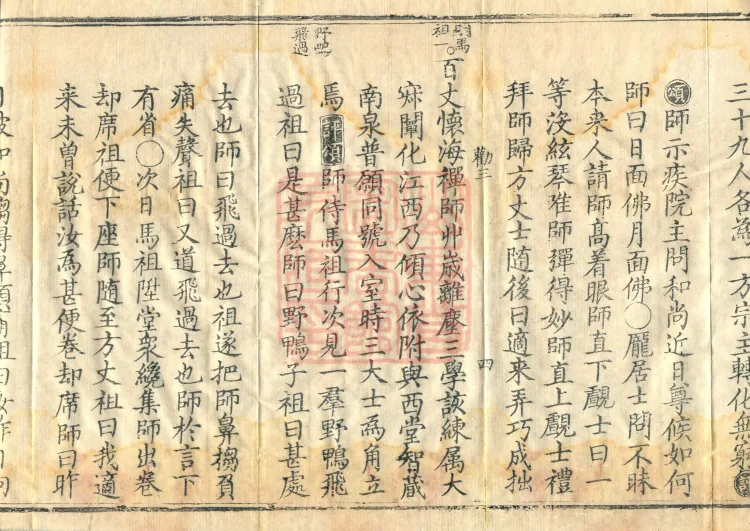 三十九人各為一方宗主轉化無窮
頌師示疾院主問和尚近日尊候如何
師曰日面佛月面佛〇龐居士問不昧
本来人請師髙着眼師直下覷士曰一
等沒絃琴唯師彈得妙師直上覷士禮
拜師歸方丈士随後曰適来弄巧成拙
勸三
四
馬
祖一
〇百丈懷海禪師丱歳離塵三學該練属大
寂闡化江西乃傾心依附與西堂智蔵
南泉普願同號入室時三大士為角立
焉評頌師侍馬祖行次見一羣野鴨飛
野鴨
飛過
過祖曰是甚麽師曰野鴨子祖曰甚處
去也師曰飛過去也祖遂把師鼻搊負
痛失聲祖曰又道飛過去也師於言下
有省〇次日馬祖陞堂衆纔集師出卷
却席祖便下座師随至方丈祖曰我適
来未曽說話汝為甚便卷却席師曰昨